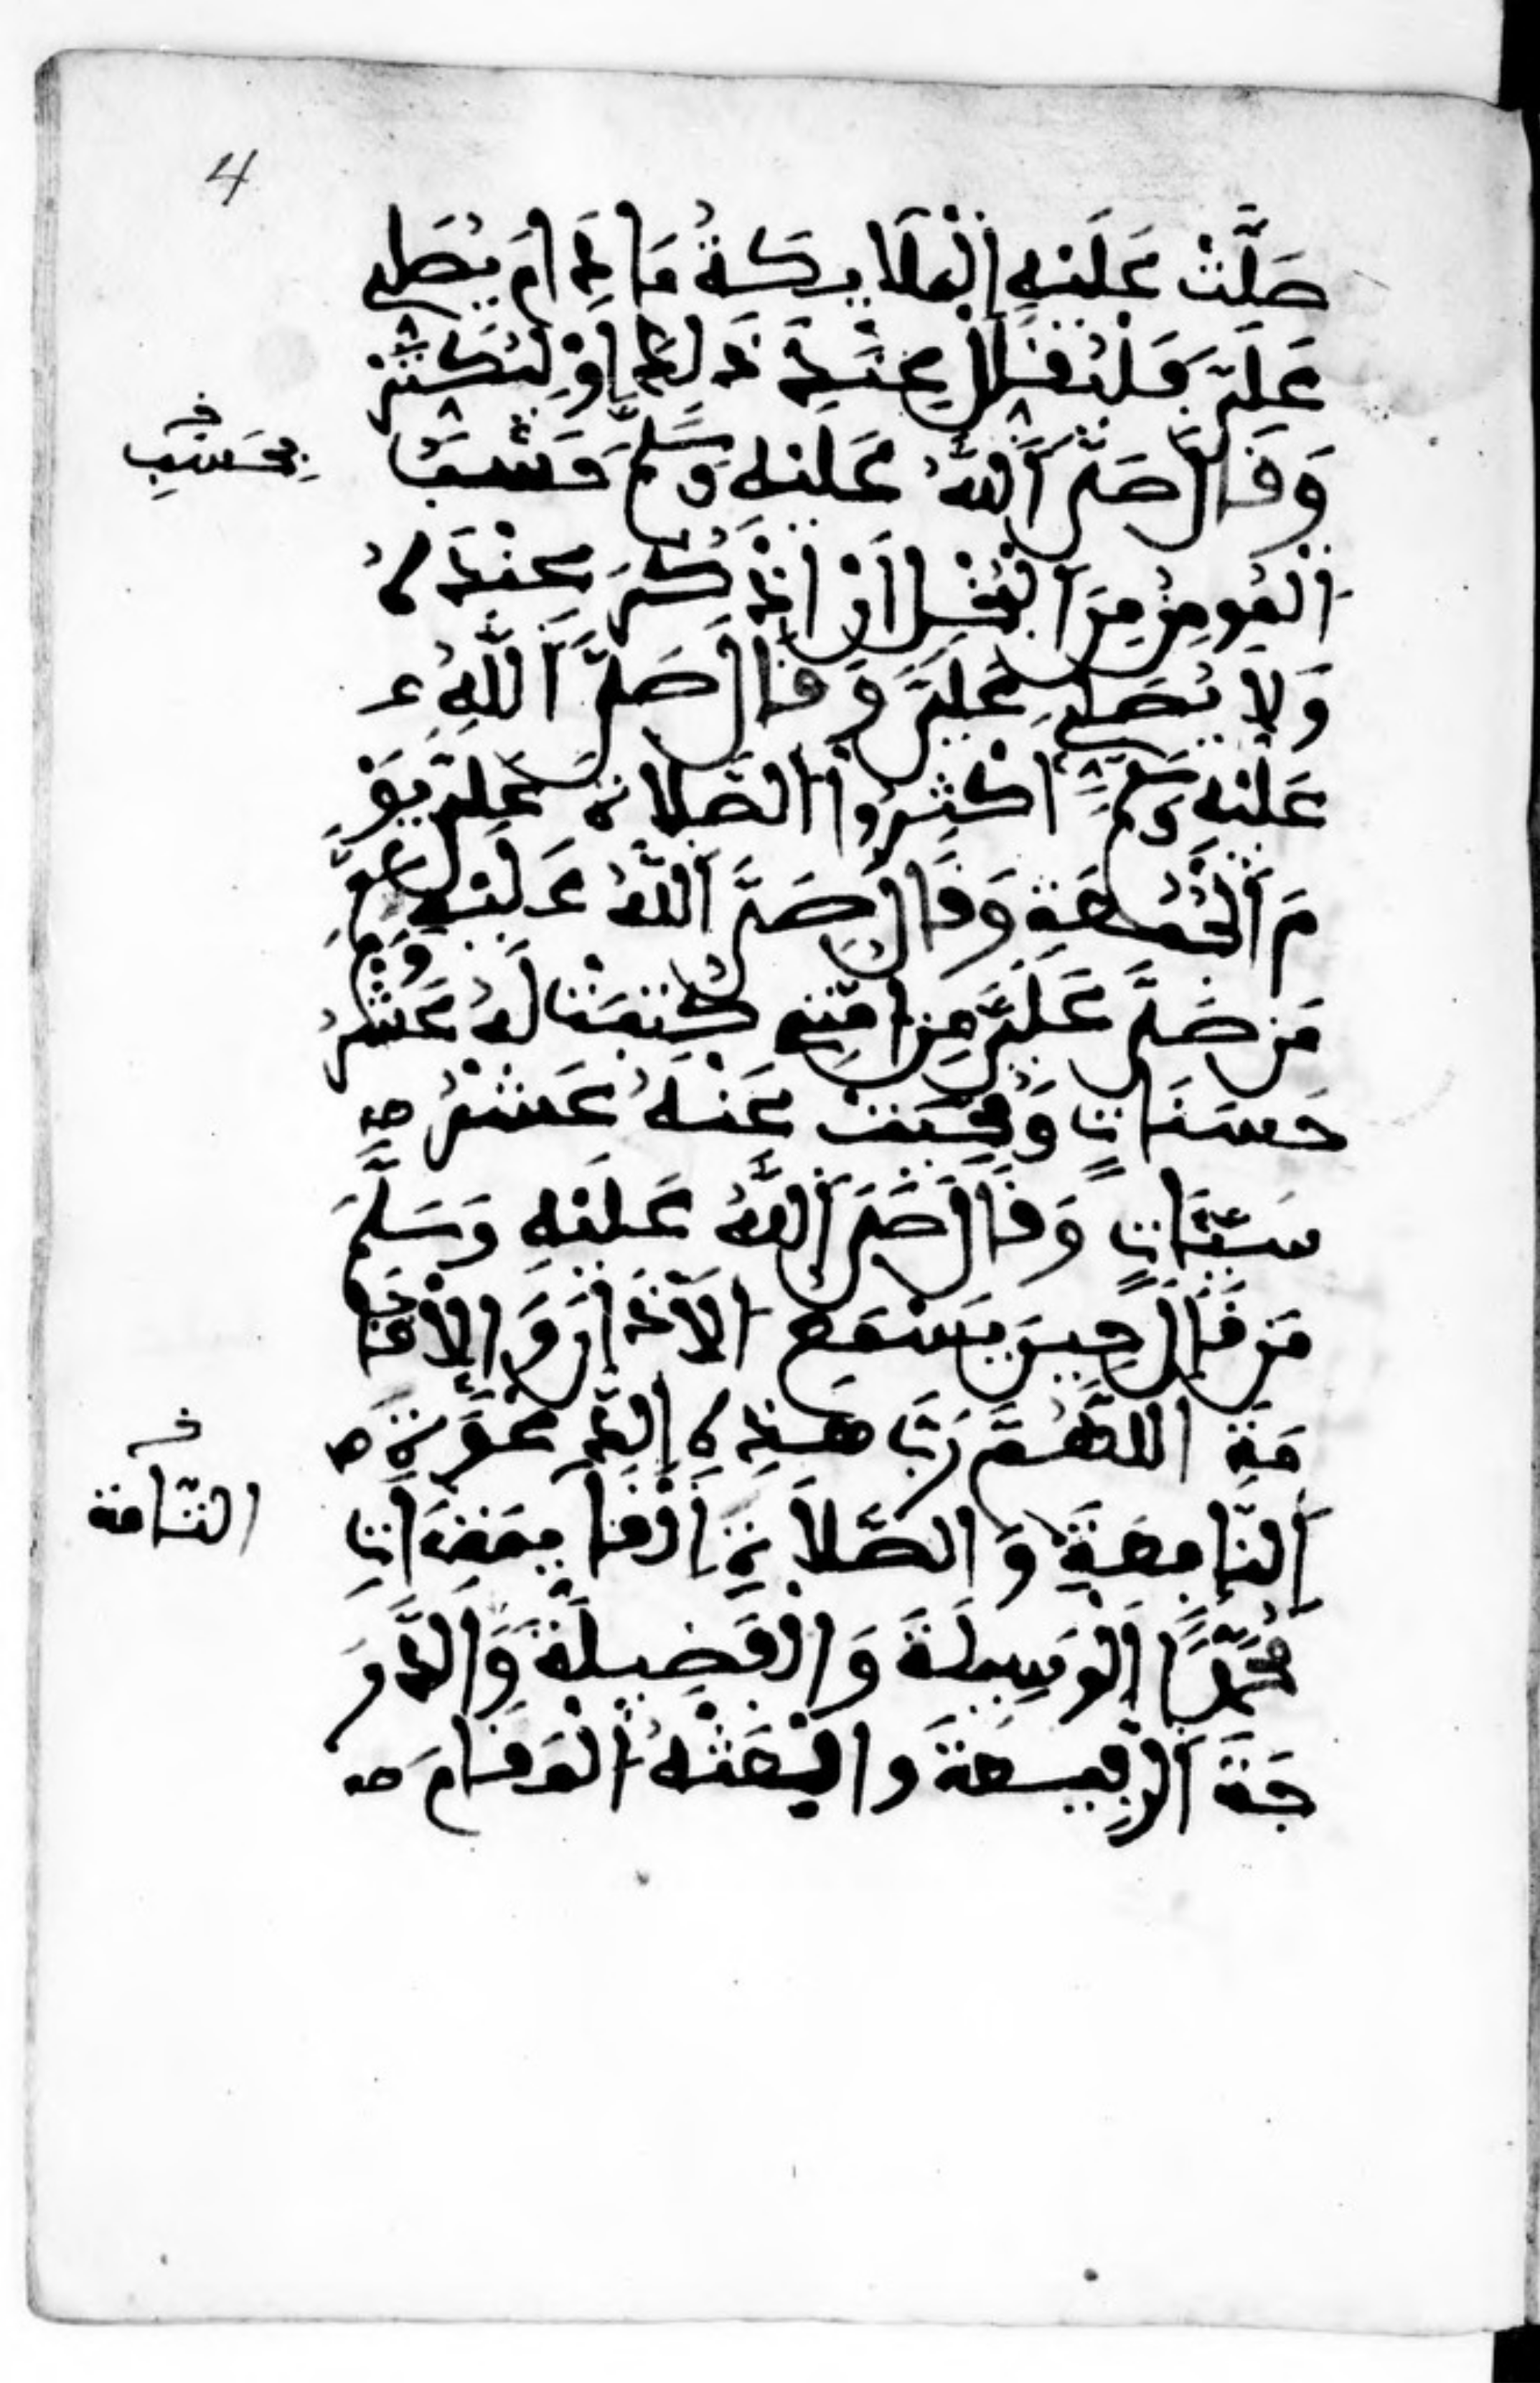 4
صَلَّتْ عَلَيْهِ اَ۬لْمَلَايِكَةُ مَا دَامَ يُصَلِّي
عَلَيَّ فَلْيُقَلِّلْ عِنْدَ ذَلِكَ اَوْ لِيُكَثِّرْ
وَقَالَ صَلَّى اَ۬للَّهُ عَلَيْهِ وَسَلَّمَ حَسْبُ
بِحَسْبِ
اَ۬لْمُومِنِ مِنَ اَ۬لْبُخْلِ أَنْ اذْكَرَ عِنْدَهُ
وَلَا يُصَلِّي عَلَيَّ وَقَالَ صَلَّى اَ۬للَّهُ ع
عَلَيْهِ وَسَلَّمَ اَكْثِرُوا الصَّلَاةَ عَلَيَّ يَوْ
مَ اَ۬لْجُمُعَةِ وَقَالَ صَلَّى اَ۬للَّهُ عَلَيْهِ وَسَلَّمَ
مَن صَلَّى عَلَيَّ مِنُ امَّتِي كُتِبَتْ لَهُ عَشْرُ
حَسَنَاتٍ وَمُحِيَتْ عَنْهُ عَشْرُ
سَيِّئَاتٍ وَقَالَ صَلَّى اَ۬للَّهُ عَلَيْهِ وَسَلَّمَ
مَن قَالَ حِينَ يَسْمَعُ الْأَذَانَ وَالْإِقَا
مَةِ اللَّهُمَّ رَبَّ هَذِهِ اِ۬لدَّعْوَةِ
اَ۬لنَّافِعَةِ وَالصَّلَاةِ اِ۬لْقَايِمَةِ اتِ
التَّامة
مُحَمَّدًا اَ۬لْوَسِيلَةَ وَالْفَضِيلَةَ وَالدَّرَ
جَةَ اَ۬لرَّفِيعَةَ وَابْعَثْهُ اَ۬لْمَقَامَ